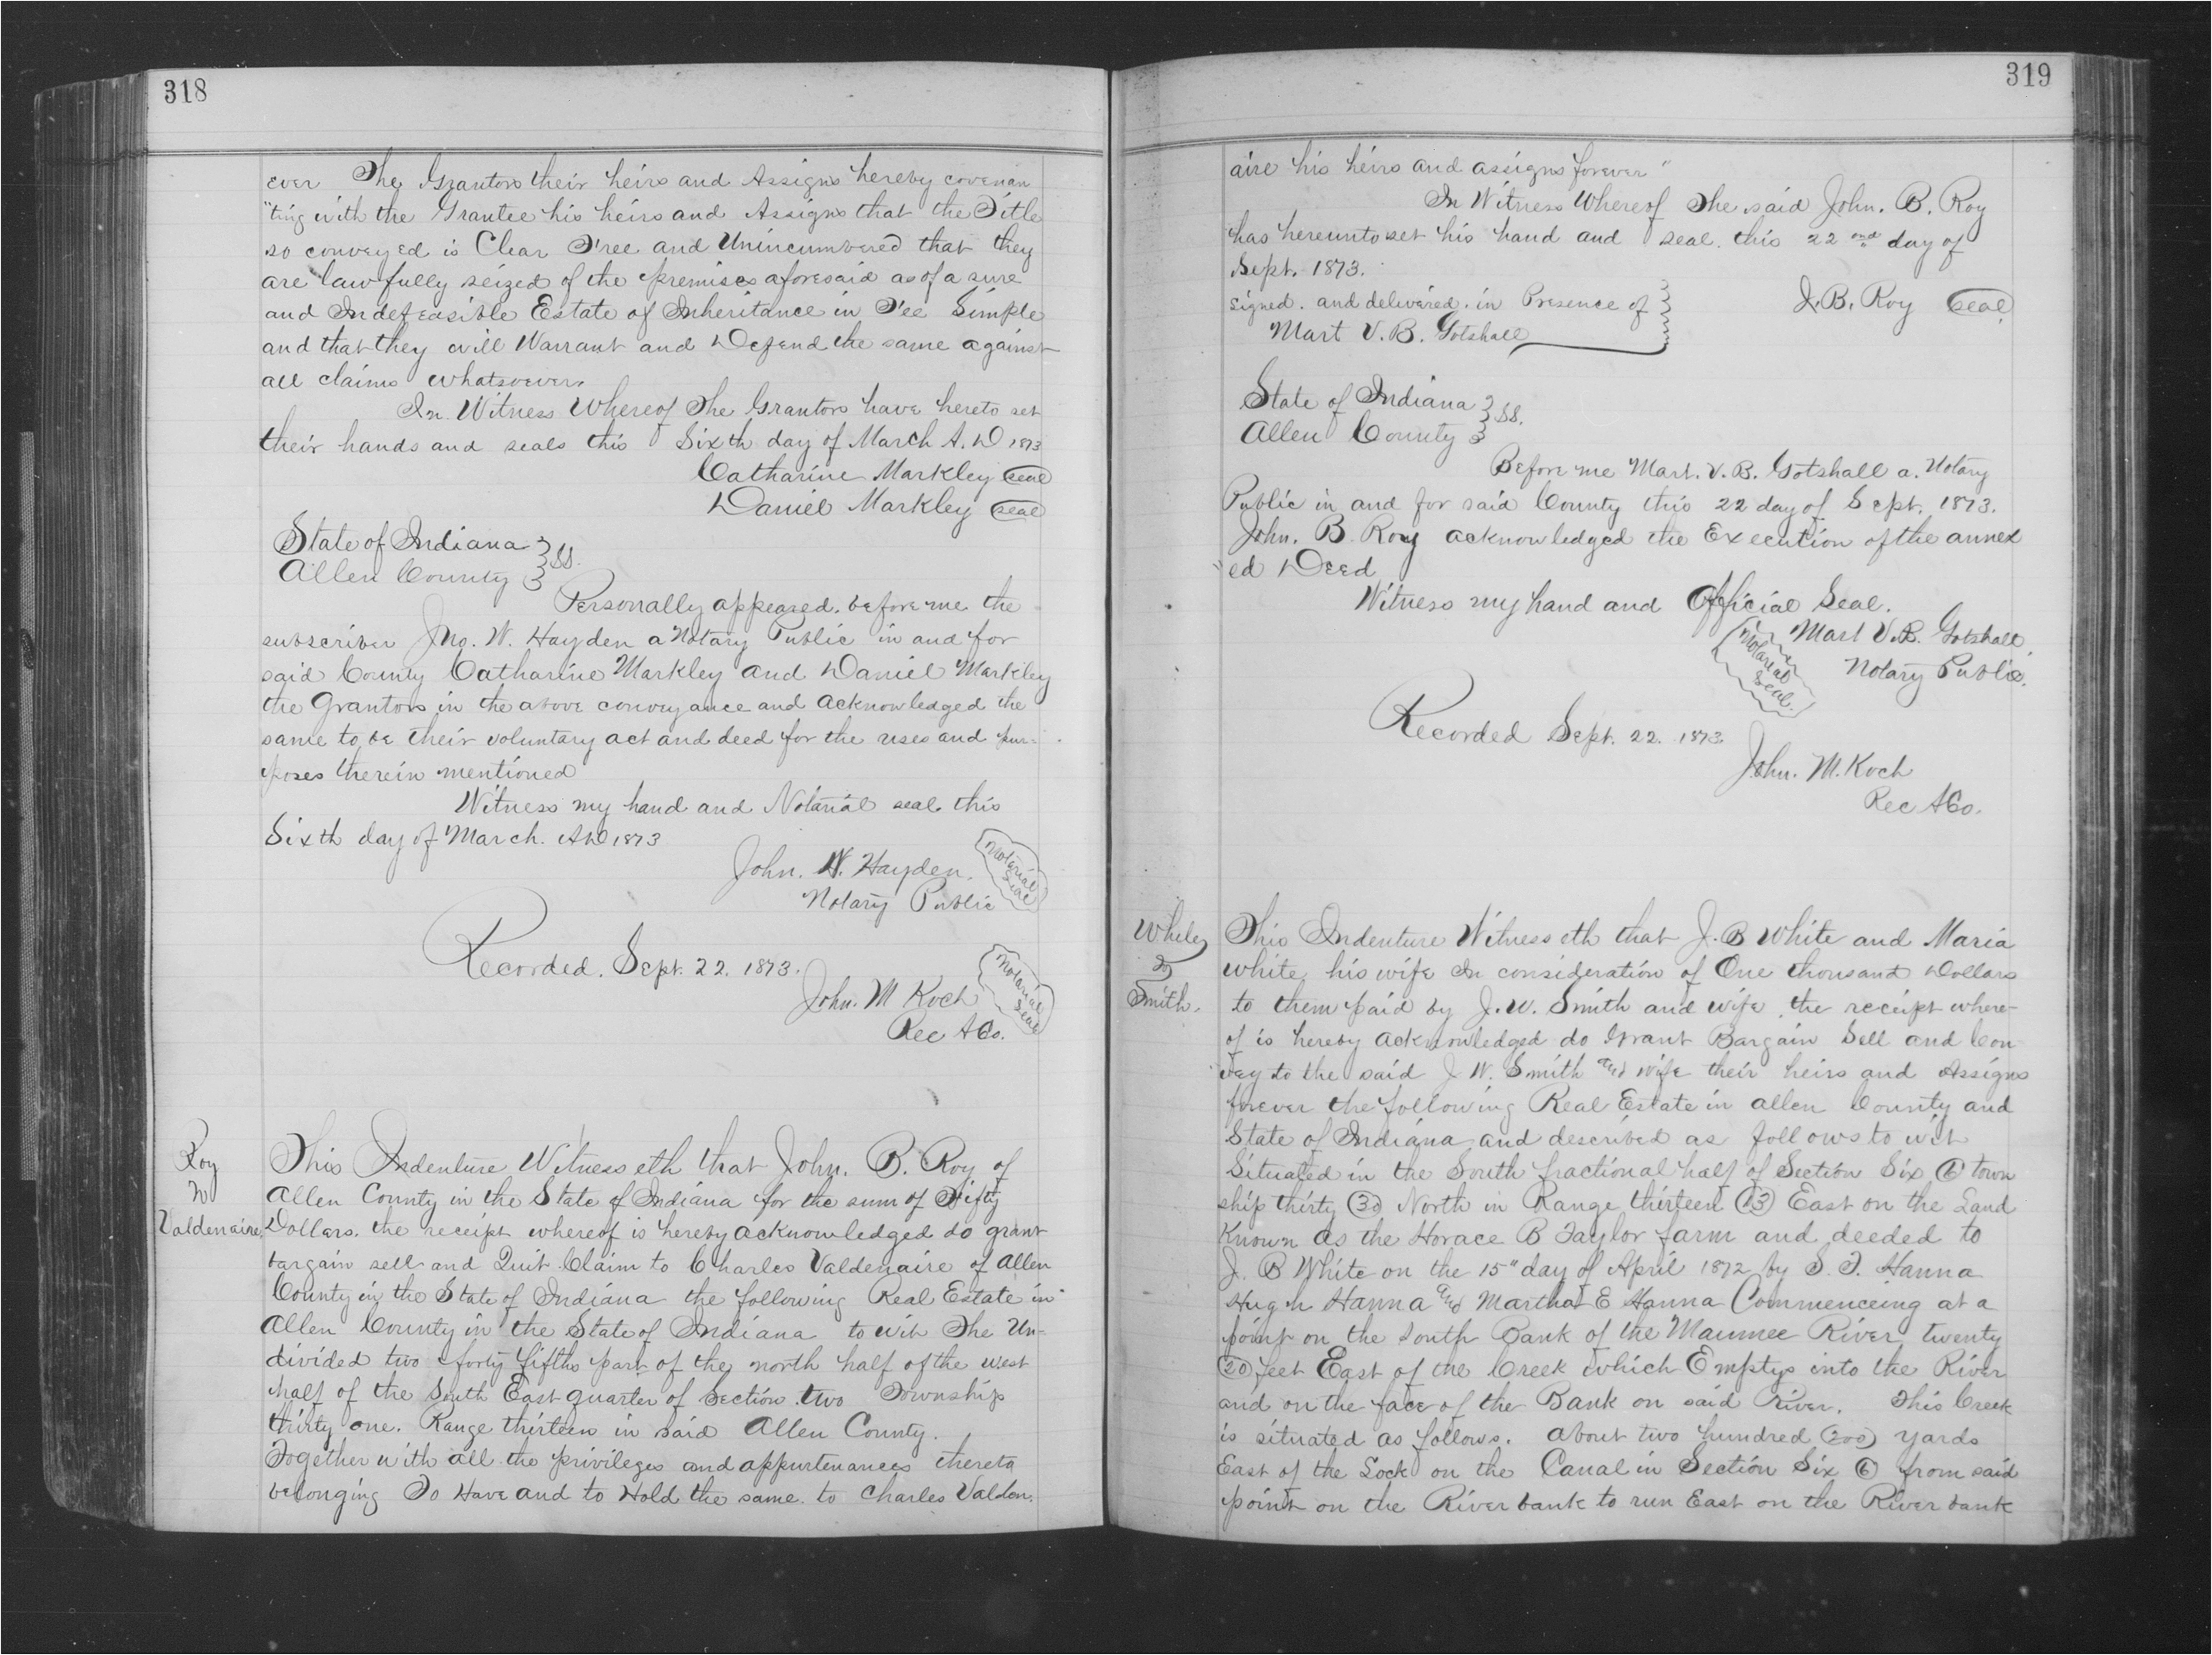 318
ever The Grantors their heirs and Assigns hereby covenan
"ting with the Grantee his heirs and Assigns that the Title
so conveyed is Clear Free and Unincumbered that they
are lawfully seized of the premises aforesaid as of a sure
and Indefeasible Estate of Inheritance in Fee Simple
and that they will Warrant and Defend the same against
all claims whatsoever.
In Witness Whereof The Grantors have hereto set
their hands and seals this Sixth day of March A.D 1873
Catharine Markley seal
Daniel Markley seal
State of Indiana
Allen County } SS.
Personally appeared. before me the
subscriber Jno. W. Hayden a Notary Public in and for
said County Catharine Markley and Daniel Markley
the Grantors in the above conveyance and acknowledged the
same to be their voluntary act and deed for the uses and pur=
poses therein mentioned
Witness my hand and Notarial seal this
Sixth day of March. AD 1873
John. W. Hayden.
Notary Public
Notarial Seal
Recorded. Sept. 22. 1873.
John. M Koch
Rec A Co.
Notarial Seal
Roy
to
Valdenaire.
This Indenture Witnesseth that John. B. Roy of
Allen County in the State of Indiana for the sum of Fifty
Dollars. the receipt whereof is hereby acknowledged do grant
bargain sell and Quit Claim to Charles Valdenaire of Allen
County in the State of Indiana the following Real Estate in
Allen County in the State of Indiana to wit The Un-
divided two forty fifths part of the north half of the west
half of the South East quarter of Section two Township
thirty one. Range thirteen in said Allen County.
Together with all the privileges and appurtenances thereto
belonging To Have and to Hold the same to Charles Valden.
319
aire his heirs and assigns forever"
In Witness Whereof The said John. B. Roy
has hereunto set his hand and seal. this 22nd day of
Sept. 1873.
signed. and delivered. in Presence of
J.B. Roy Seal
Mart V. B. Gotshall
State of Indiana
Allen County } SS.
Before me Mart. V. B. Gotshall a. Notary
Public in and for said County this 22 day of Sept. 1873.
John. B. Roy acknowledged the Execution of the annex
"ed Deed
Witness my hand and Official Seal.
Mart V.B. Gotshall.
Notary Public.
Notarial Seal.
Recorded Sept. 22. 1873
John. M. Koch
Rec A Co.
to
Smith.
This Indenture Witnesseth that J. B White and Maria
White his wife In consideration of One thousand Dollars
to them paid by J. W. Smith and wife the receipt where-
of is hereby acknowledged do Grant Bargain Sell and Con
vey to the said J W. Smith and wife their heirs and Assigns
forever the following Real Estate in Allen County and
State of Indiana and described as follows to wit
Situated in the South fractional half of Section Six (6) town
ship thirty (30) North in Range thirteen (13) East on the Land
Known as the Horace B Taylor farm and deeded to
J. B White on the 15" day of April 1872 by S. T. Hanna
Hugh Hanna and Martha E Hanna Commenceing at a
point on the South Bank of the Maumee River twenty
(20) feet East of the Creek which Emptys into the River
and on the face of the Bank on said River. This Creek
is situated as follows. about two hundred (200) yards
East of the Lock on the Canal in Section Six (6) from said
point on the River bank to run East on the River bank